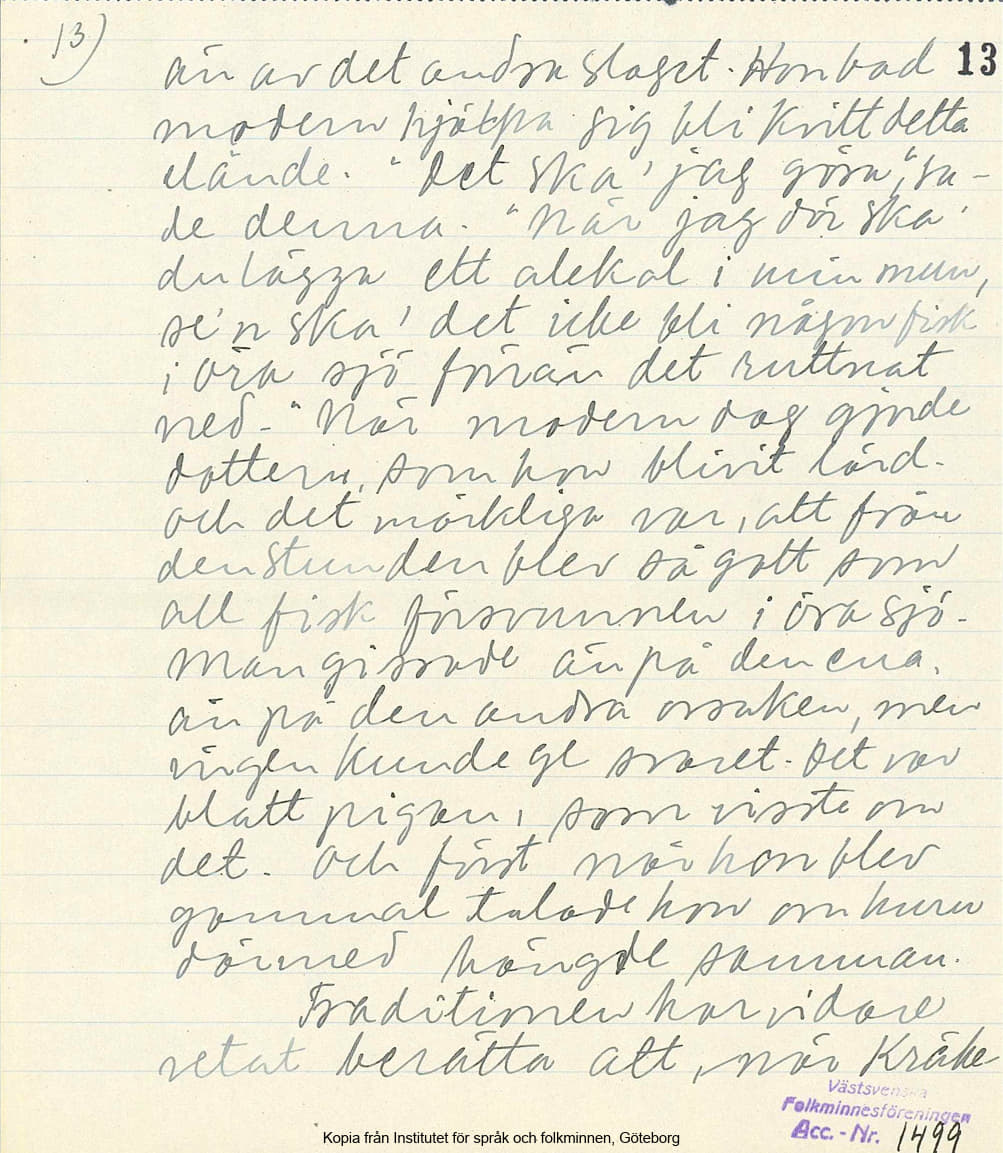 13)
13
än av det andra slaget. Hon bad
modern hjälpa sig bli kvitt detta
elände. "Det ska' jag göra", sa-
de denna. "När jag dör ska'
du lägga ett alekol i min mun,
se'n ska' det icke bli någon fisk
i öra sjö förrän det ruttnat
ned." När modern dog gjorde
dottern, som hon blivit lärd.
och det märkliga var, att från
den stunden blev så gott som
all fisk försvunnen i öra sjö.
Man gissade än på den ena,
än på den andra orsaken, men
ingen kunde ge svaret. Det var
blott pigan, som visste om
det. Och först när hon blev
gammal talade hon om huru
därmed hängde samman.
Traditionen har vidare
vetat berätta att, när Kråke
Västsvenska
Folkminnesföreningen
Acc. - Nr. 1499
Kopia från Institutet för språk och folkminnen, Göteborg